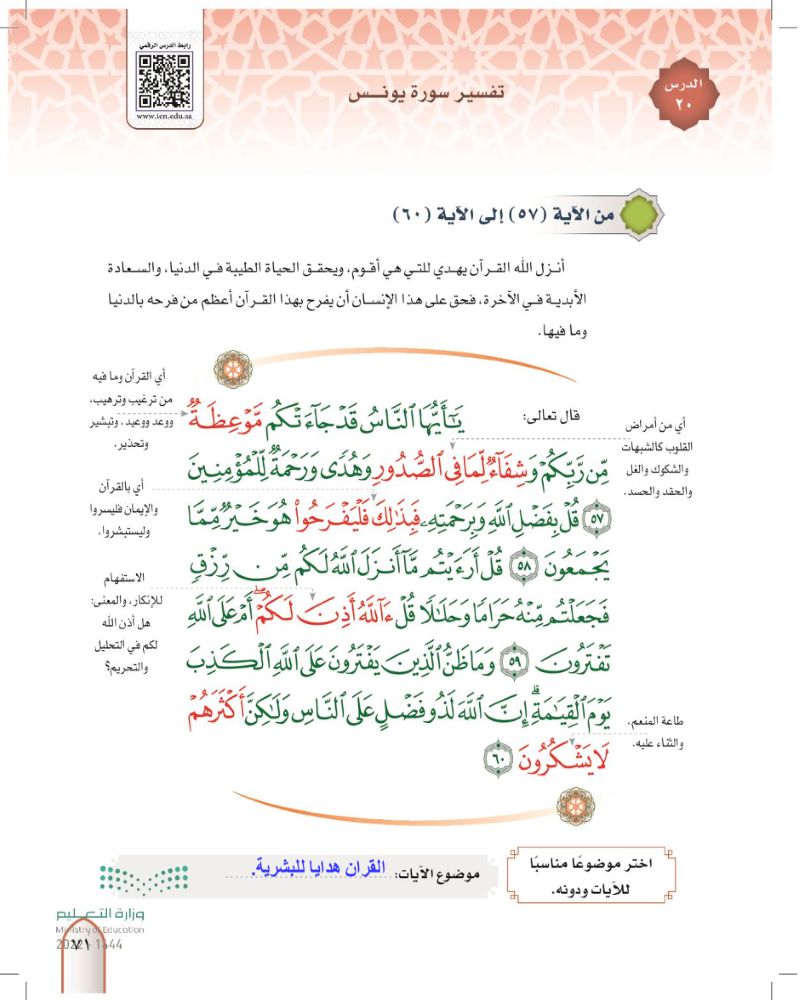 رابط الدرس الرقمي
www.ien.edu.sa
الدرس
٢٠
تفسير سورة يونـس
من الآية (٥٧) إلى الآية (٦٠)
أنـزل الله القـرآن يهـدي للتي هي أقوم، ويحقـق الحياة الطيبة في الدنيا، والسـعادة
الأبديـة في الآخرة، فحق على هذا الإنسـان أن يفرح بهذا القـرآن أعظم من فرحه بالدنيا
وما فيها.
أي القرآن وما فيه
من ترغيب وترهيب،
ووعد ووعيد، وتبشير
وتحذير.
أي من أمراض
القلوب كالشبهات
والشكوك والغل
والحقد والحسد.
أي بالقرآن
والإيمان فليسروا
وليستبشروا.
الاستفهام
للإنكار، والمعنى:
هل أذن الله
لكم في التحليل
والتحريم؟
طاعة المنعم،
والثناء عليه.
قال تعالى: يَـٰٓأَيُّهَا ٱلنَّاسُ قَدۡ جَآءَتۡكُم مَّوۡعِظَةٌ
مِّن رَّبِّكُمۡ وَشِفَآءٌ لِّمَا فِي ٱلصُّدُورِ وَهُدًى وَرَحۡمَةٌ لِّلۡمُؤۡمِنِينَ
٥٧ قُلۡ بِفَضۡلِ ٱللَّهِ وَبِرَحۡمَتِهِۦ فَبِذَٰلِكَ فَلۡيَفۡرَحُواْ هُوَ خَيۡرٌ مِّمَّا
يَجۡمَعُونَ ٥٨ قُلۡ أَرَءَيۡتُم مَّآ أَنزَلَ ٱللَّهُ لَكُم مِّن رِّزۡقٍ
فَجَعَلۡتُم مِّنۡهُ حَرَامًا وَحَلَٰلًا قُلۡ ءَآللَّهُ أَذِنَ لَكُمۡۖ أَمۡ عَلَى ٱللَّهِ
تَفۡتَرُونَ ٥٩ وَمَا ظَنُّ ٱلَّذِينَ يَفۡتَرُونَ عَلَى ٱللَّهِ ٱلۡكَذِبَ
يَوۡمَ ٱلۡقِيَٰمَةِۗ إِنَّ ٱللَّهَ لَذُو فَضۡلٍ عَلَى ٱلنَّاسِ وَلَٰكِنَّ أَكۡثَرَهُمۡ
لَا يَشۡكُرُونَ ٦٠
اختر موضوعًا مناسبًا
للآيات ودونه.
موضوع الآيات: القران هدايا للبشرية.
وزارة التعـليم
Ministry of Education
2022 - 1444
٧١